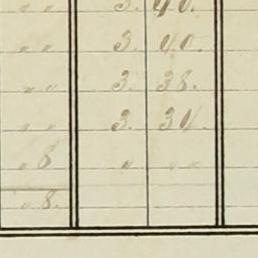 " " 3. 40.
" " 3. 40.
" " 3. 38.
" " 3. 34.
" 8 " " "
" 8.